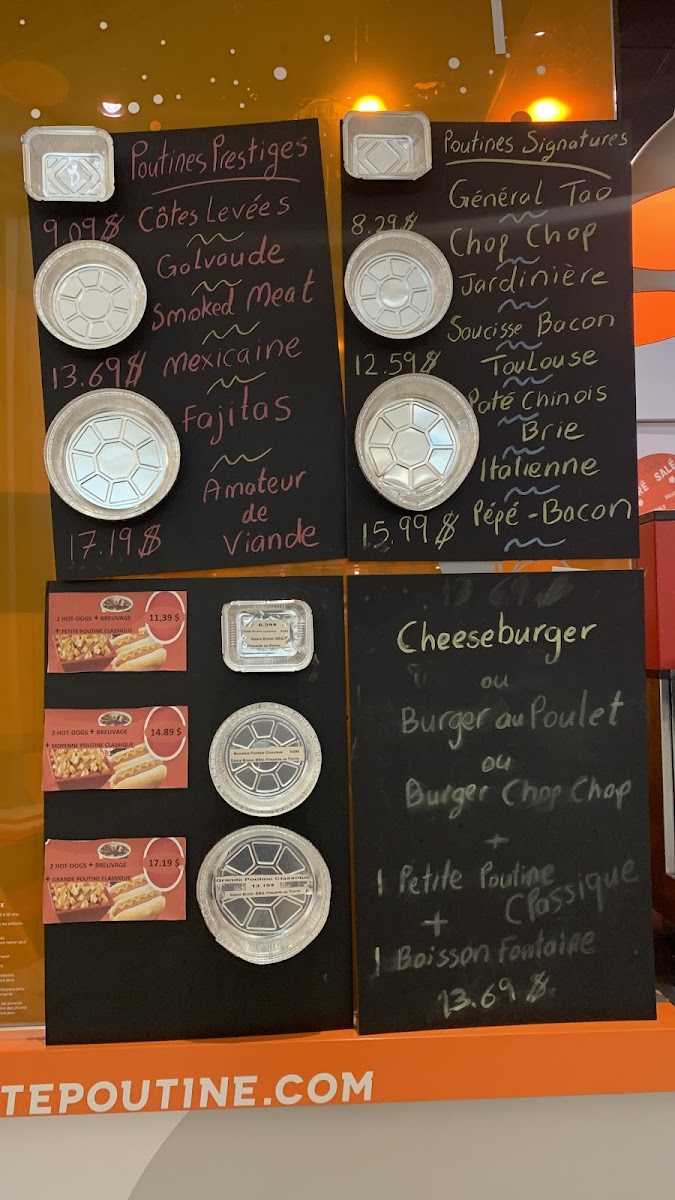 Poutines Prestiges
9.09$
Côtes Levées
Galvaude
Smoked Meat
13.69$
Mexicaine
Fajitas
Amateur
de
Viande
17.19$
Poutines Signatures
Général Tao
8.29$
Chop Chop
Jardinière
Saucisse Bacon
12.59$
Toulouse
Paté Chinois
Brie
Italienne
15.99$
Pépé-Bacon
2 HOT-DOGS + BREUVAGE
11,39 $
+ PETITE POUTINE CLASSIQUE
2 HOT-DOGS + BREUVAGE
14.89 $
+ MOYENNE POUTINE CLASSIQUE
2 HOT-DOGS + BREUVAGE
17.19 $
+ GRANDE POUTINE CLASSIQUE
Grande Poutine Classique
13.19$
Cheeseburger
ou
Burger au Poulet
ou
Burger Chop Chop
+
1 Petite Poutine
Classique
+
1 Boisson Fontaine
13.69 $
TEPOUTINE.COM
SALÉ